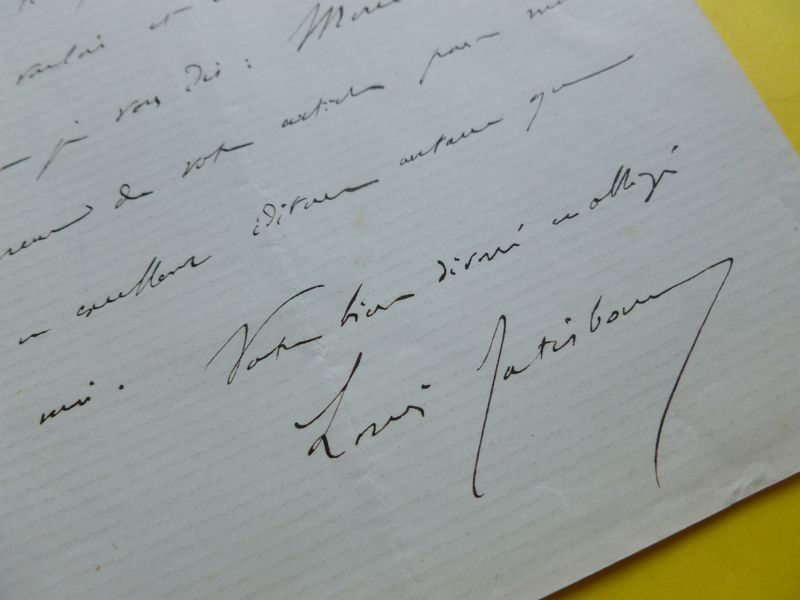 vouloir et
je vous dis : Merci
de votre article pour
excellent éditeur autant que
moi. Votre bien dévoué et obligé
Louis Ratisbonne